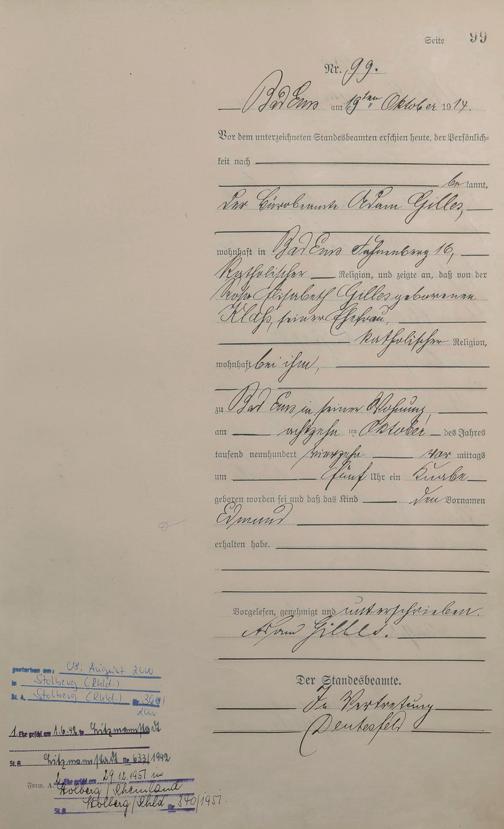 Seite 99
Nr. 99.
Bad Ems am 19ten Oktober 1914.
Vor dem unterzeichneten Standesbeamten erschien heute, der Persönlich-
keit nach
bekannt,
der Bürobeamte Adam Gilles,
wohnhaft in Bad Ems 16,
katholischer Religion, und zeigte an, daß von der
Rosa Elisabeth Gilles geborenen
seiner Ehefrau,
katholischer Religion,
wohnhaft bei ihm,
zu Bad Ems in seiner Wohnung,
am achtzehn ten Oktober des Jahres
tausend neunhundert vierzehn vor mittags
um fünf Uhr ein Knabe
geboren worden sei und daß das Kind den Vornamen
Edmund
erhalten habe.
Vorgelesen, genehmigt und unterschrieben.
Adam Gilles.
Der Standesbeamte.
In Vertretung
gestorben am: 09. August 2000
in Stolberg (Rhld.)
St. A. Stolberg (Rhld.) Nr.
2000
1. Ehe geschl. am 1.6.42 in Litzmannstadt
St. A. Litzmannstadt Nr. 633/1942
2. Ehe geschl. am 29.12.1951 in
Form. A.
Stolberg / Rheinland
St. A. Stolberg / Rhld Nr. 340/1951.